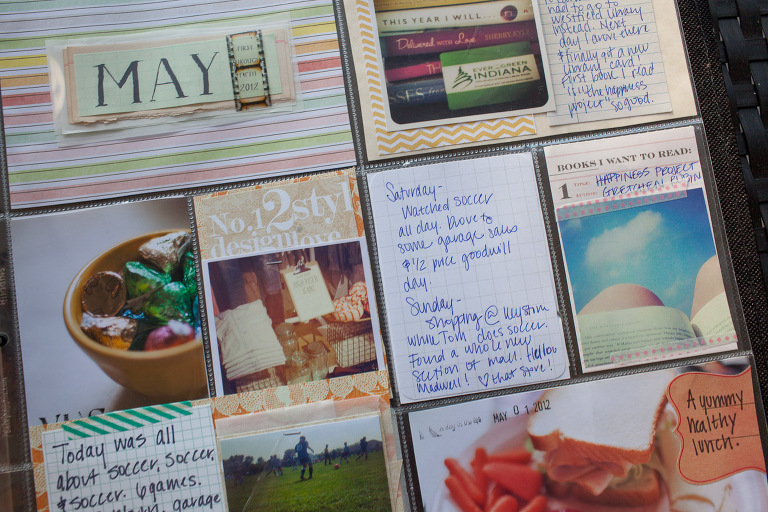 MAY
FIRST
2012
THIS YEAR I WILL...
Delivered with Love SHERRY
EVERGREEN
INDIANA
had to go to
westfield library
instead. Next
day I drove there
& finally got a new
library card!
first book I read
is "the happiness
project" so good.
No.1 2 styl
design love
Saturday-
Watched soccer
all day. Drove to
some garage sales
& 1/2 price goodwill
day.
Sunday-
Shopping @ Keystone
while Tom does soccer.
Found a whole new
section of mall. Hello
Madwell! ♡ that store!
BOOKS I WANT TO READ:
1 TITLE: HAPPINESS PROJECT
AUTHOR: GRETCHEN RUBIN
Today was all
about soccer, soccer,
& soccer. 6 games.
garage
MAY 01 2012
A yummy
healthy
lunch.